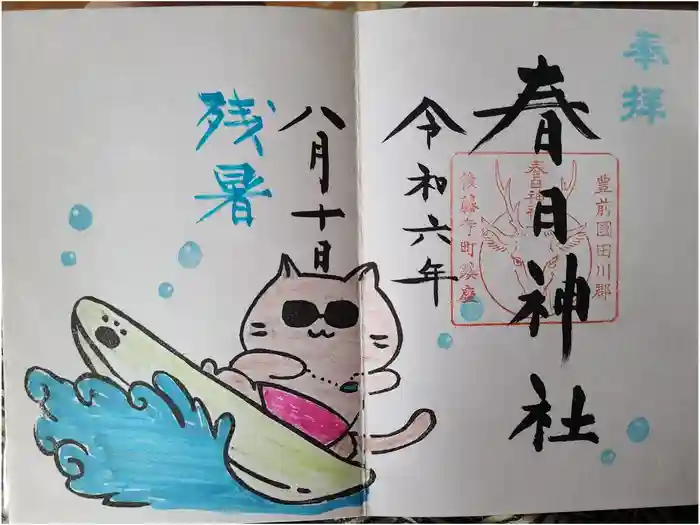 奉拝
春日神社
豊前國田川郡
春日神社
後藤寺町鎮座
令和六年
八月十日
残暑